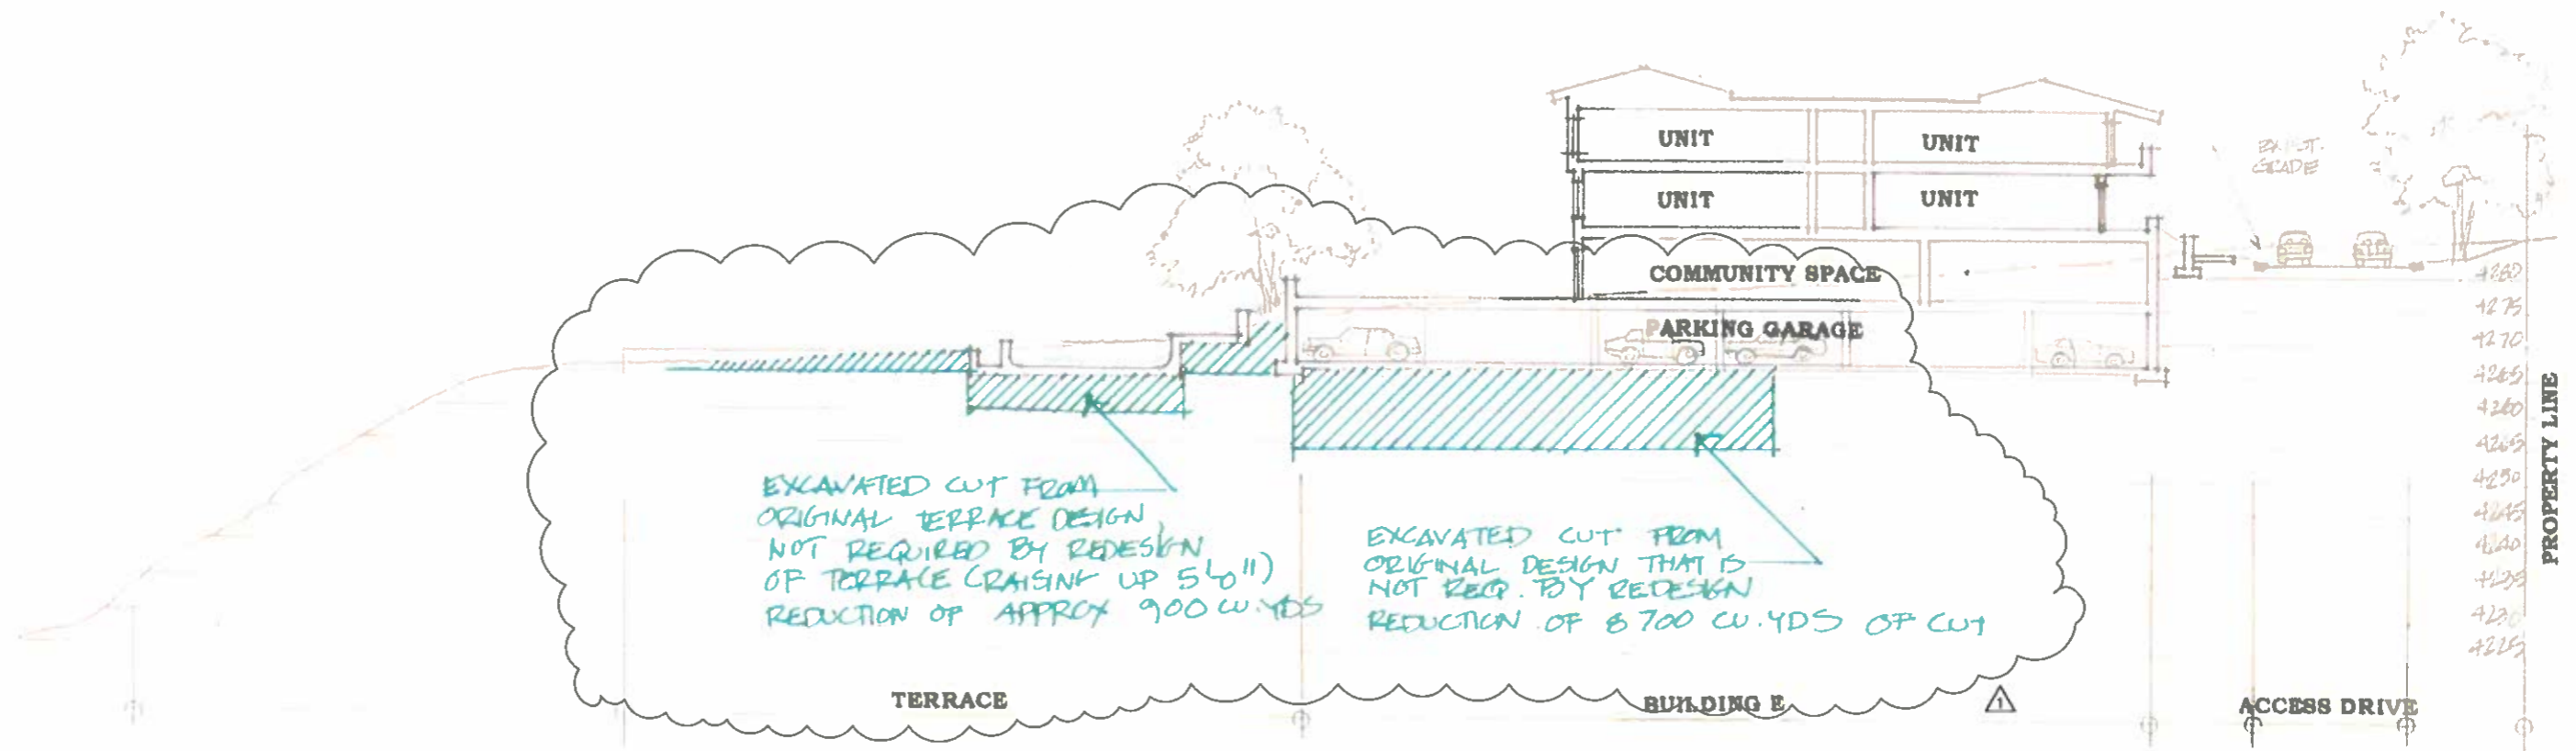 UNIT UNIT
UNIT UNIT
EXIST.
GRADE
COMMUNITY SPACE
PARKING GARAGE
4280
4275
4270
4265
4260
4250
4245
4240
4235
4230
4225
PROPERTY LINE
EXCAVATED CUT FROM
ORIGINAL TERRACE DESIGN
NOT REQUIRED BY REDESIGN
OF TERRACE (RAISING UP 5'0")
REDUCTION OF APPROX 900 CU.YDS
EXCAVATED CUT FROM
ORIGINAL DESIGN THAT IS
NOT REQ. BY REDESIGN
REDUCTION OF 8700 CU.YDS OF CUT
TERRACE
BUILDING E
1
ACCESS DRIVE